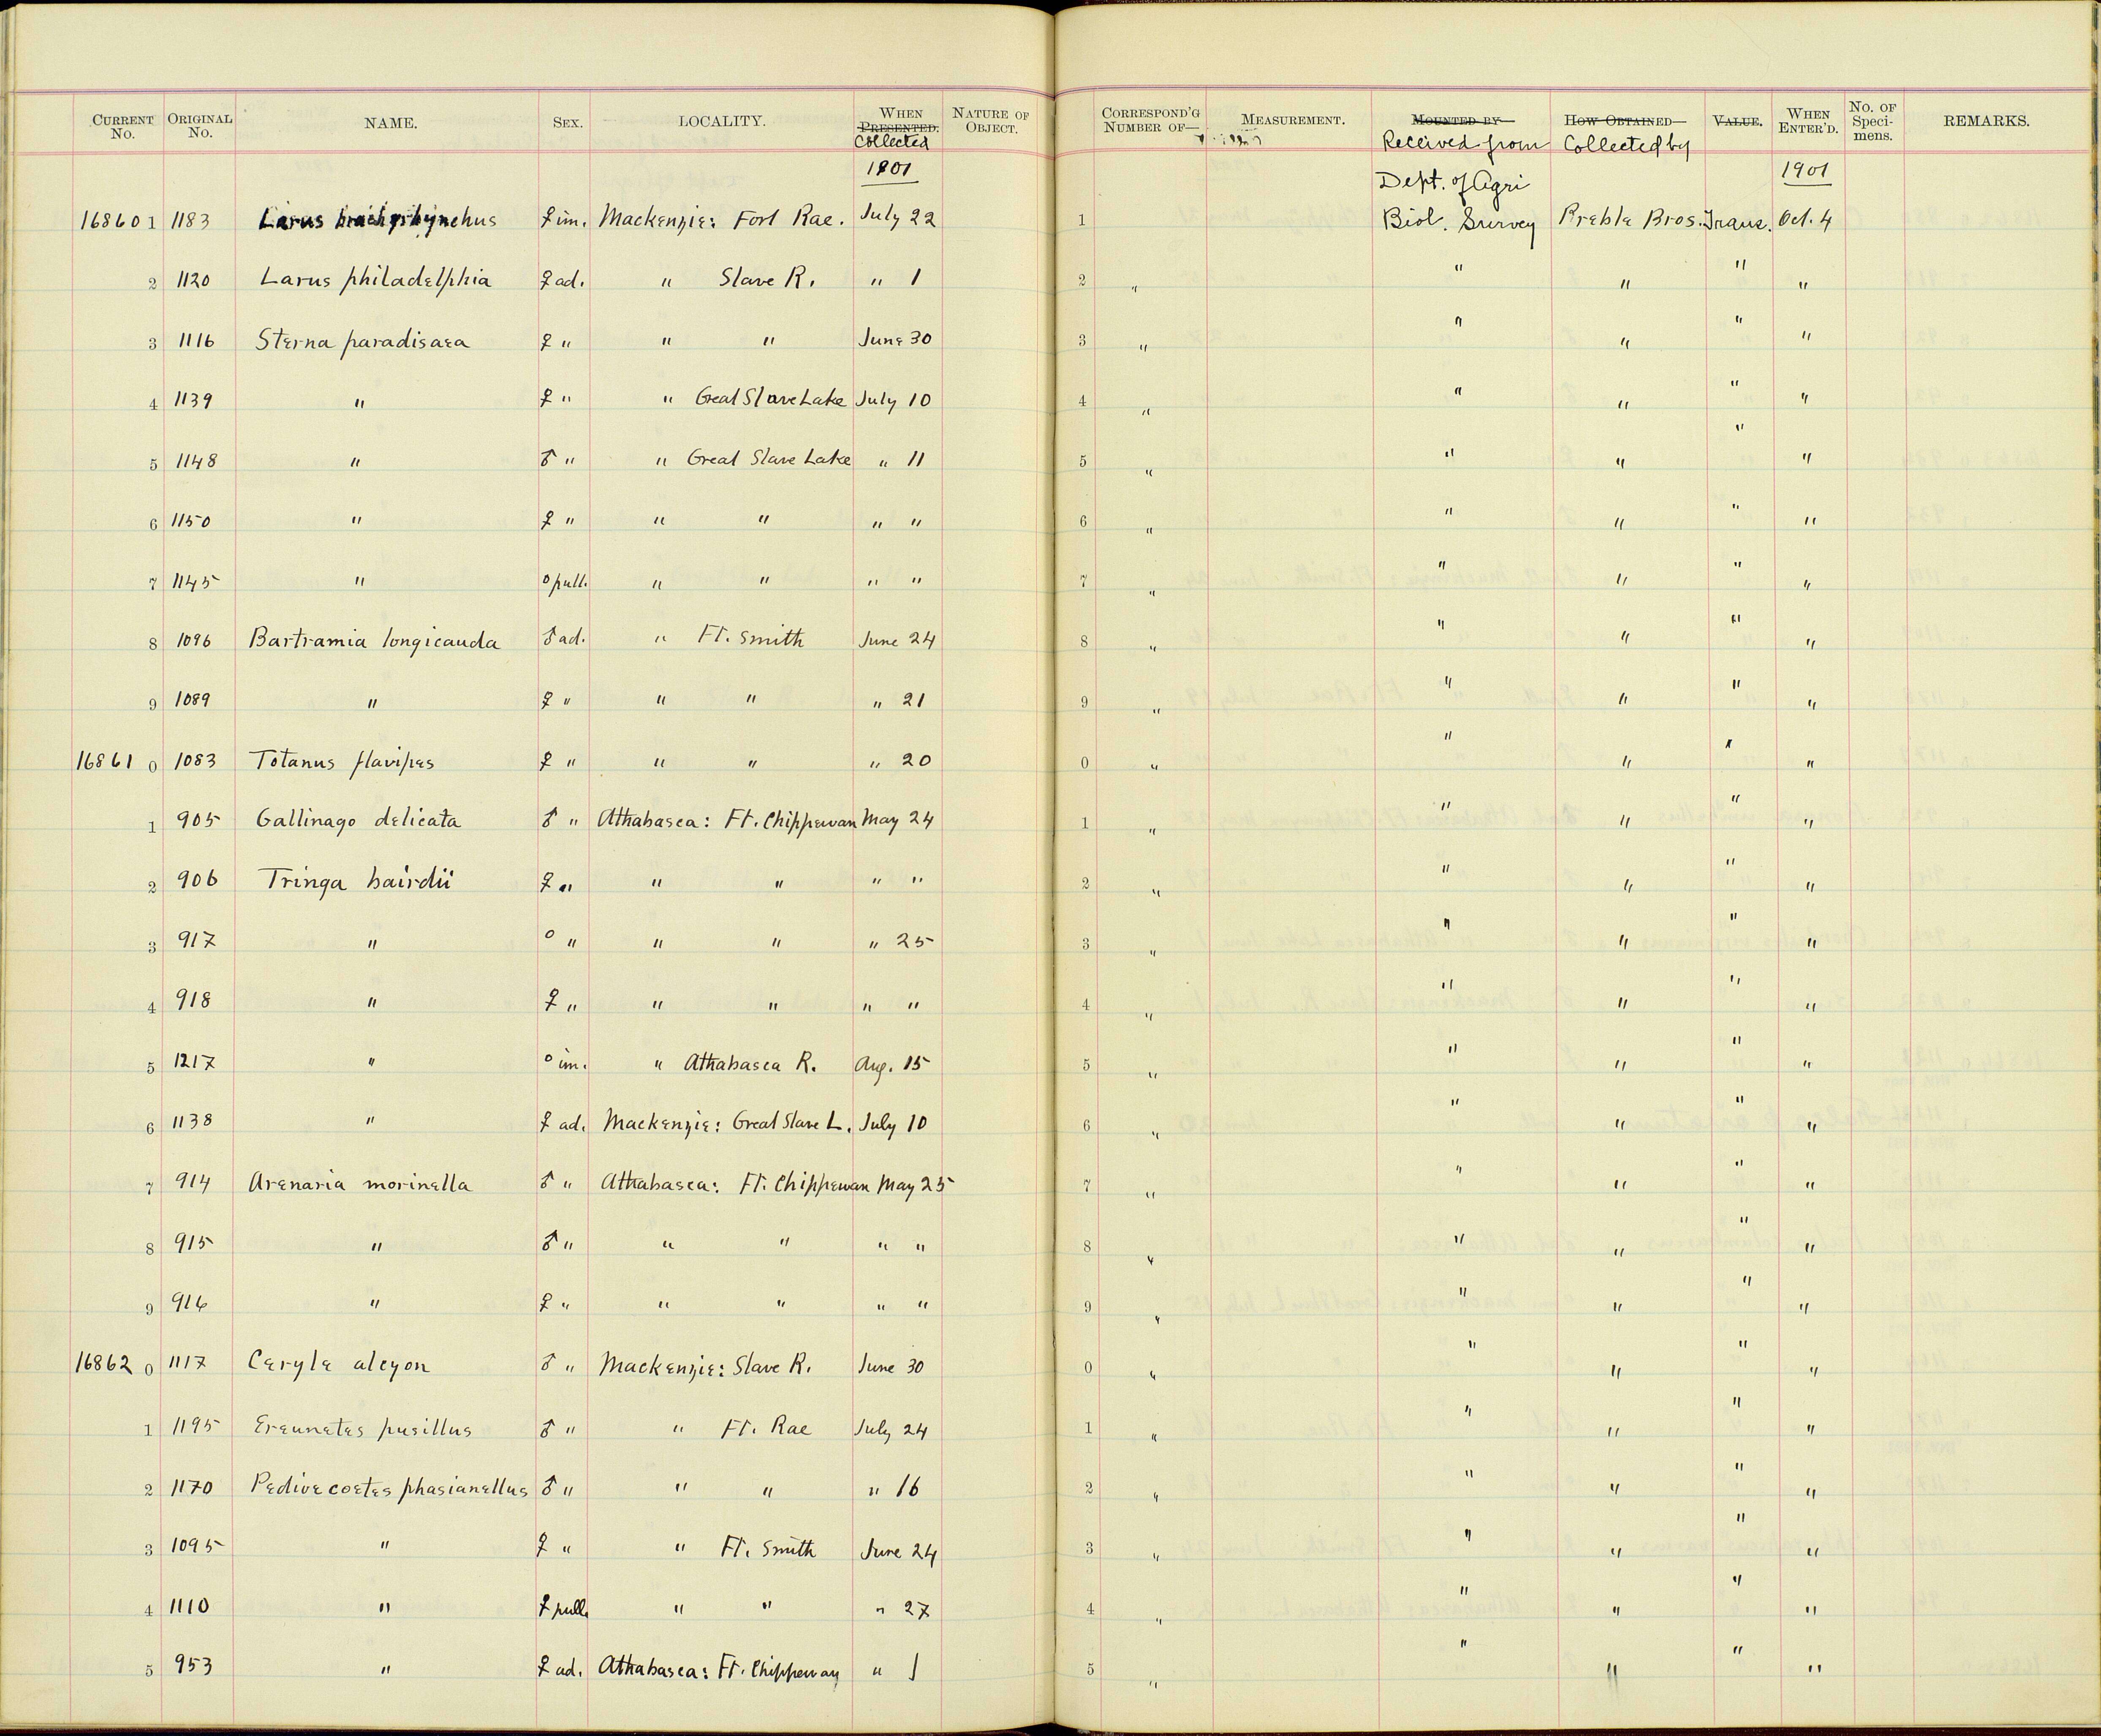 CURRENT No. ORIGINAL No. NAME. SEX. LOCALITY. WHEN PRESENTED. Collected NATURE OF OBJECT. CORRESPOND'G NUMBER OF— MEASUREMENT. MOUNTED BY— Received from HOW OBTAINED— Collected by VALUE. WHEN ENTER'D. No. OF Speci-mens. REMARKS.
1901 Dept. of Agri 1901
168601 1183 Larus brachyrhynchus ♀ im. Mackenzie: Fort Rae. July 22 1 Biol. Survey Preble Bros. Trans. Oct. 4
2 1120 Larus philadelphia ♀ ad. " Slave R. " 1 2 " " " " "
3 1116 Sterna paradisaea ♀ " " " June 30 3 " " " " "
4 1139 " ♀ " " Great Slave Lake July 10 4 " " " " "
5 1148 " ♂ " " Great Slave Lake " 11 5 " " " " "
6 1150 " ♀ " " " " " 6 " " " " "
7 1145 " o pull. " " " " 7 " " " " "
8 1096 Bartramia longicauda ♂ ad. " Ft. Smith June 24 8 " " " " "
9 1089 " ♀ " " " " 21 9 " " " " "
16861 0 1083 Totanus flavipes ♀ " " " " 20 0 " " " " "
1 905 Gallinago delicata ♂ " Athabasca: Ft. Chippewan May 24 1 " " " " "
2 906 Tringa bairdii ♀ " " " " " 2 " " " " "
3 917 " o " " " " 25 3 " " " " "
4 918 " ♀ " " " " " 4 " " " " "
5 1217 " o im. " Athabasca R. Aug. 15 5 " " " " "
6 1138 " ♀ ad. Mackenzie: Great Slave L. July 10 6 " " " " "
7 914 Arenaria morinella ♂ " Athabasca: Ft. Chippewan May 25 7 " " " " "
8 915 " ♂ " " " " " 8 " " " " "
9 916 " ♀ " " " " " 9 " " " " "
16862 0 1117 Ceryle alcyon ♂ " Mackenzie: Slave R. June 30 0 " " " " "
1 1195 Ereunetes pusillus ♂ " " Ft. Rae July 24 1 " " " " "
2 1170 Pediocoetes phasianellus ♂ " " " " 16 2 " " " " "
3 1095 " ♀ " " Ft. Smith June 24 3 " " " " "
4 1110 " ♀ pull. " " " 27 4 " " " " "
5 953 " ♀ ad. Athabasca: Ft. Chippewan " 1 5 " " " " "